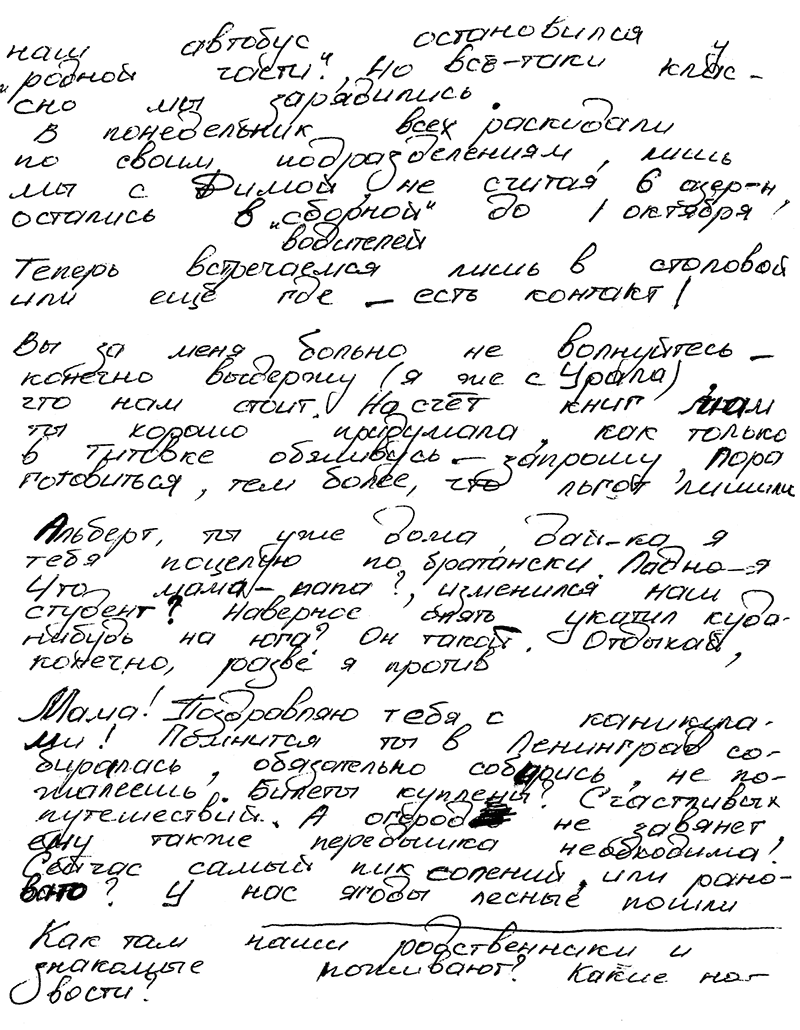 наш автобус остановился у
„родной части“. Но всё-таки клас-
сно мы зарядились.
В понедельник всех раскидали
по своим подразделениям, лишь
мы с Димой, не считая 6 азер-н,
остались в „сборной“ до 1 октября!
водителей
Теперь встречаемся лишь в столовой
или ещё где – есть контакт!
Вы за меня больно не волнуйтесь –
конечно выдержу (я же с Урала)
что нам стоит. Насчёт книг мам
ты хорошо придумала, как только
в Титовке обживусь – запрошу, пора
готовиться, тем более, что льгот лишили
Альберт, ты уже дома, дай-ка я
тебя поцелую по братански. Ладно – я
Что мама – папа?, изменился наш
студент? Наверное опять укатил куда-
нибудь на юга? Он такой. Отдыхай,
конечно, разве я против
Мама! Поздравляю тебя с каникула-
ми! Помнится ты в Ленинград со-
биралась, обязательно соберись, не по-
жалеешь. Билеты куплены? Счастливых
путешествий. А огород не завянет,
ему также передышка необходима!
Сейчас самый пик солений, или рано-
вато? У нас ягоды лесные пошли
Как там наши родственники и
знакомые поживают? Какие но-
вости?